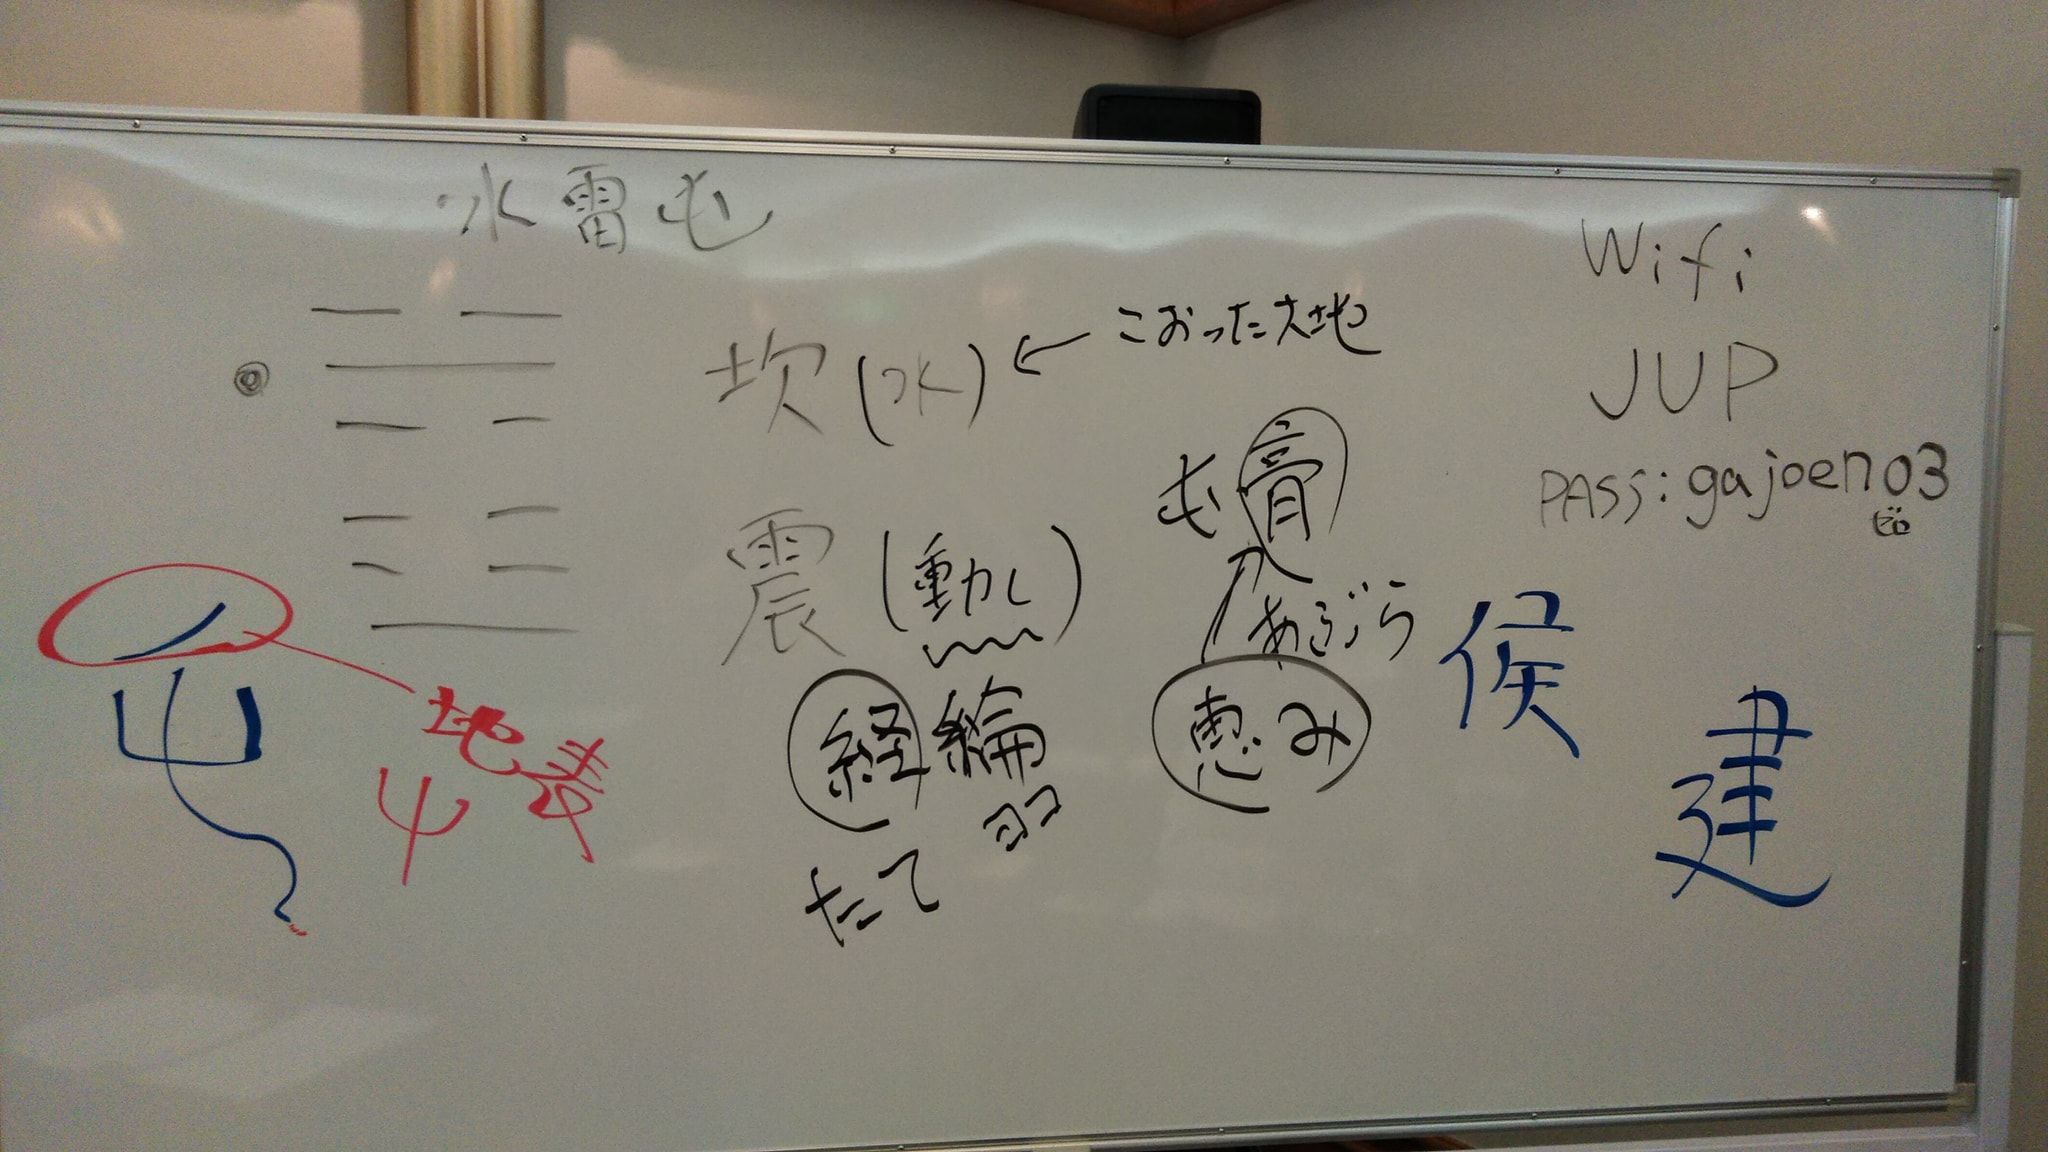 水雷屯
坎(水) ← こおった大地
震(動)
屯膏
あぶら
恵み
経綸
たて ヨコ
屯
地表
屮
Wifi
JUP
PASS:gajoen03
ゼロ
侯
建